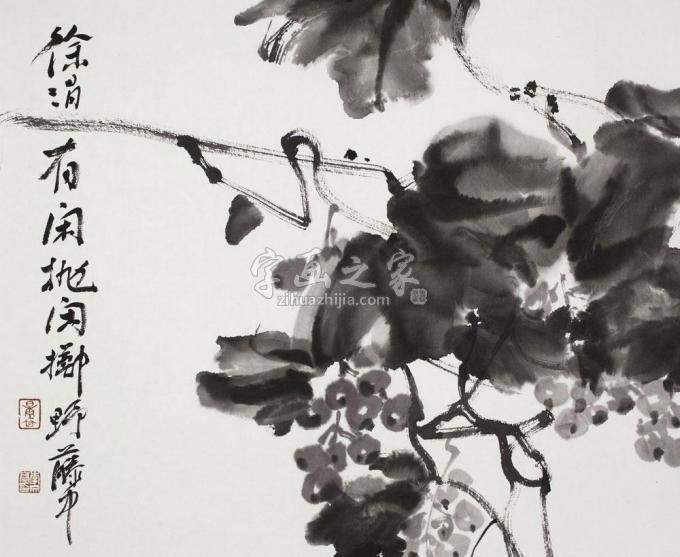 徐渭 有闲抛闲掷野藤中
字画之家
zihuazhijia.com